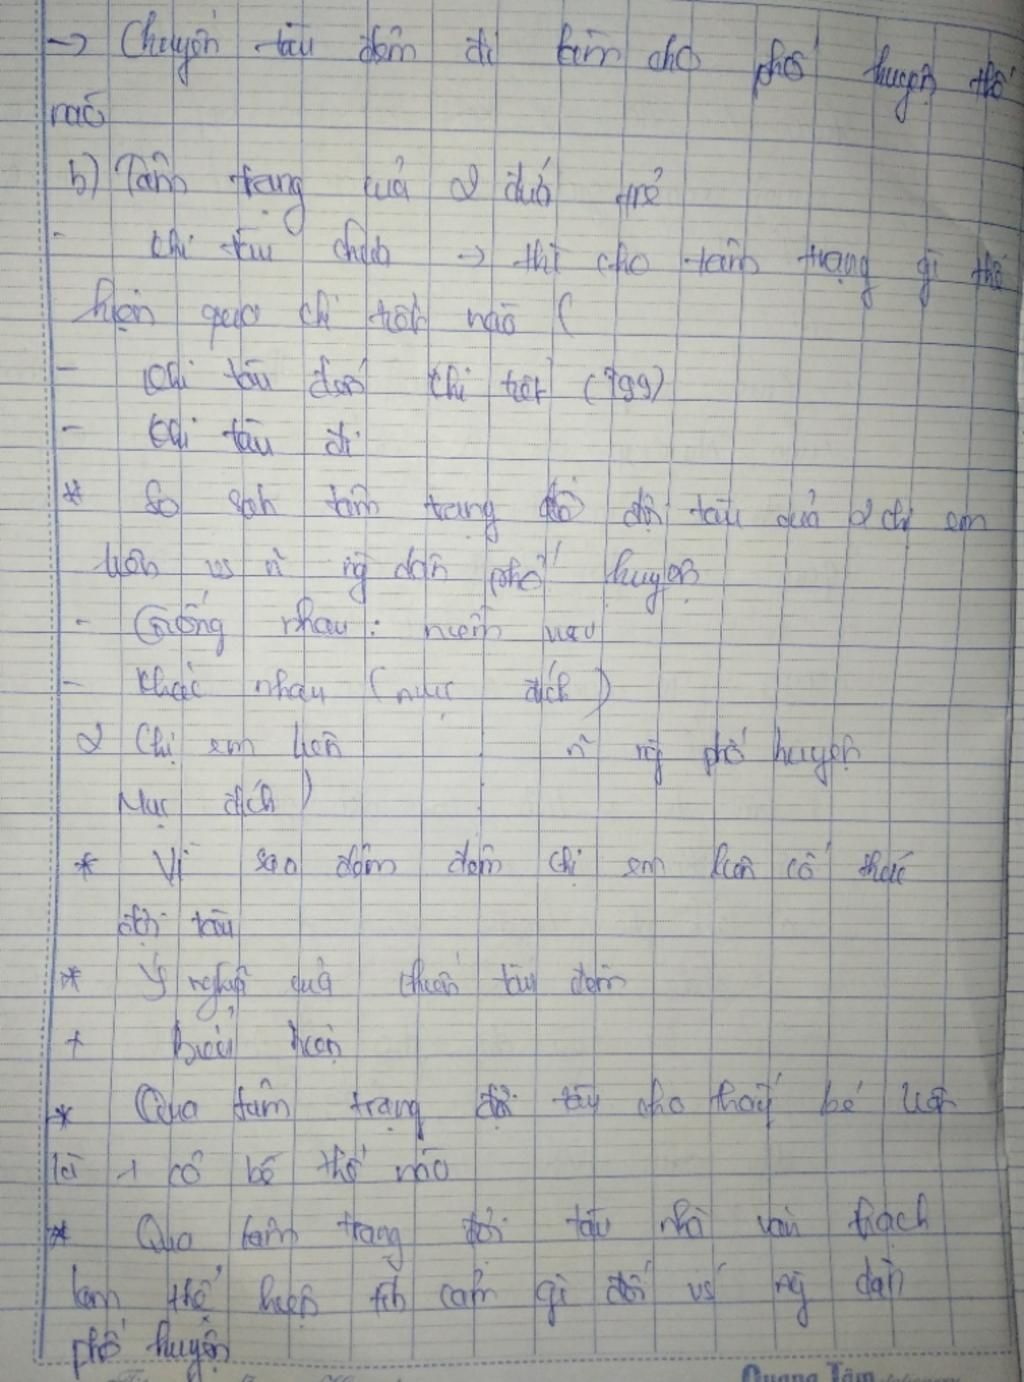 → Chuyến tàu đêm đi làm cho phố huyện thế
nào
b) Tâm trạng của 2 đứa trẻ
- khi tàu chưa → thì cho tâm trạng gì thể
hiện qua chi tiết nào (
- khi tàu đến chi tiết (799)
- khi tàu đi
* So sánh tâm trạng đợi tàu của 2 chị em
Liên vs n ng dân phố huyện
- Giống nhau: niềm vui
- Khác nhau (mục đích)
2 Chị em Liên n ng phố huyện
Mục đích)
* Vì sao đêm đêm chị em Liên cố thức
đợi tàu
* Ý nghĩa của chuyến tàu đêm
+ biểu hiện
* Qua tâm trạng đợi tàu cho thấy bé Liên
là 1 cô bé thế nào
* Qua tâm trạng đợi tàu nhà văn Thạch
Lam thể hiện tình cảm gì đối với ng dân
phố huyện
Quang Tâm